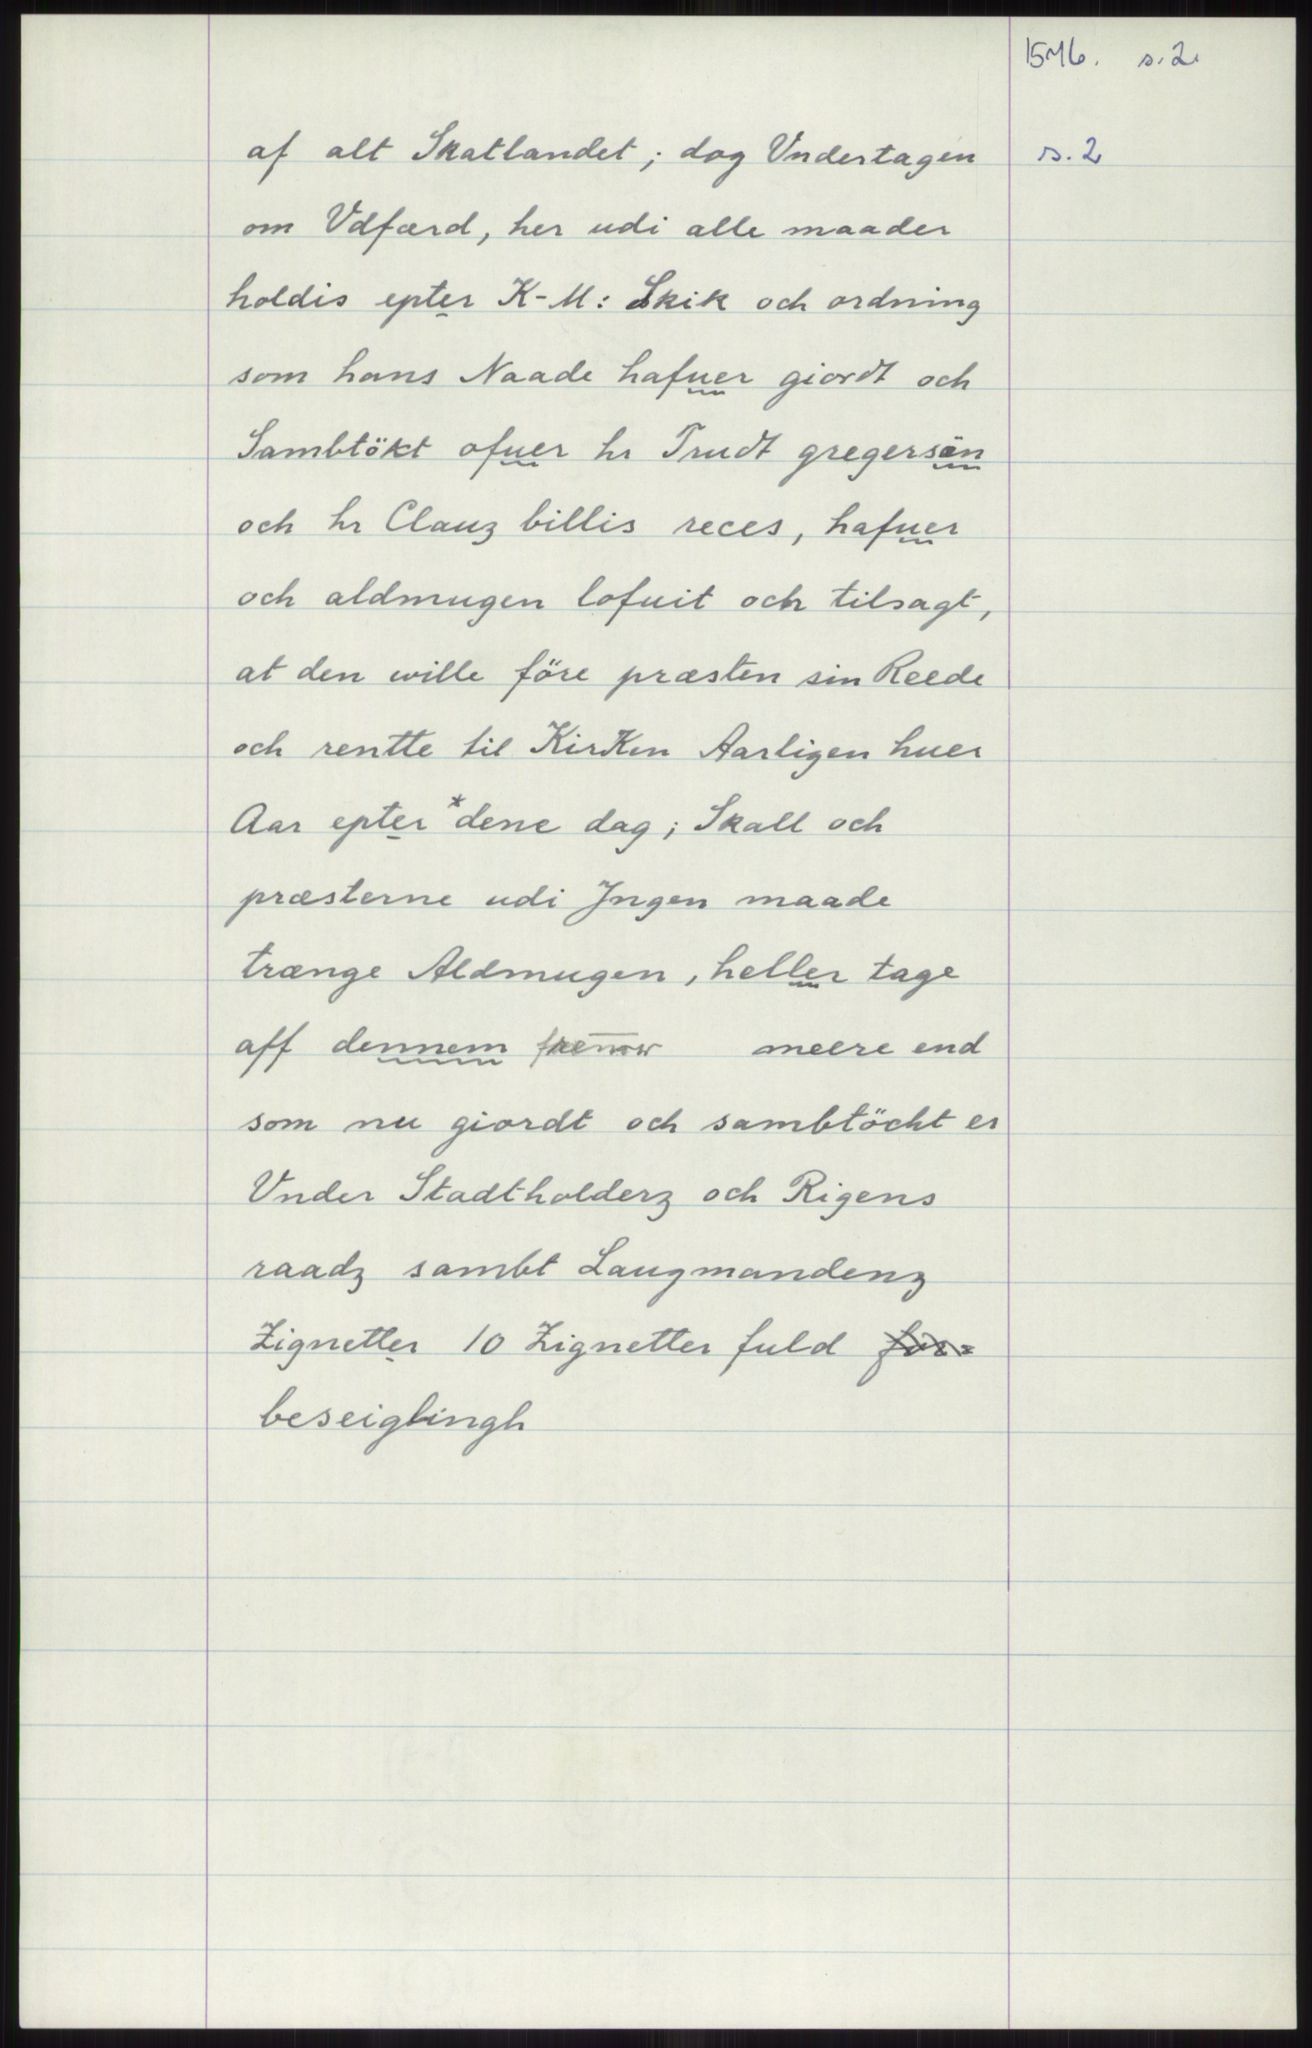 1546. s. 2.
af alt Skatlandet; dog Vndertagen s. 2
om Vdfærd, her udi alle maader
holdis epter K-M: Skik och ordning
som hans Naade hafuer giordt och
Sambtökt ofuer hr Trudt gregersön
och hr Clauz billis reces, hafuer
och aldmugen lofuit och tilsagt,
at den wille före præsten sin Reede
och rentte til Kirken Aarligen huer
Aar epter *dene dag; Skall och
præsterne udi Jngen maade
trænge Aldmugen, heller tage
aff dennem meere end
som nu giordt och sambtöcht er
Vnder Stadtholderz och Rigens
raadz sambt Laugmandenz
Zignetter 10 Zignetter fuld for=
beseiglingh